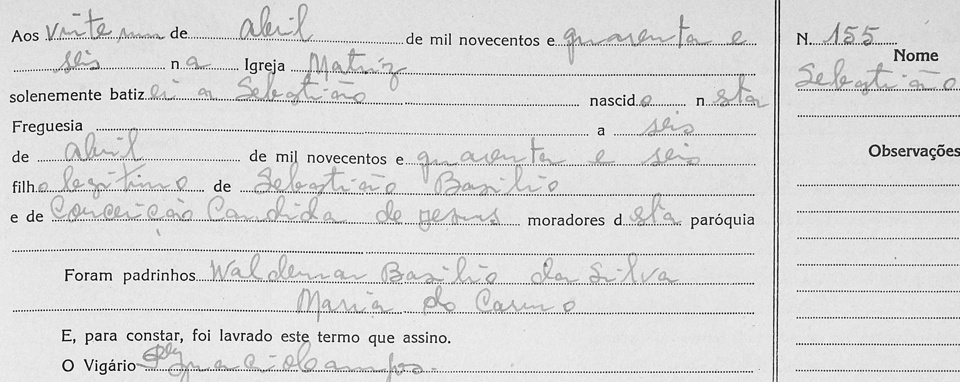 Aos vinte um de abril de mil novecentos e quarenta e
seis na Igreja Matriz
solenemente batizei a Sebastião nascido nsta
Freguesia a seis
de abril de mil novecentos e quarenta e seis
filho legitimo de Sebastião Basilio
e de Conceição Candida de Jesus moradores dsta paróquia
Foram padrinhos Waldemar Basilio da Silva
Maria do Carmo
E, para constar, foi lavrado este termo que assino.
O Vigário
N. 155
Nome
Sebastião
Observações